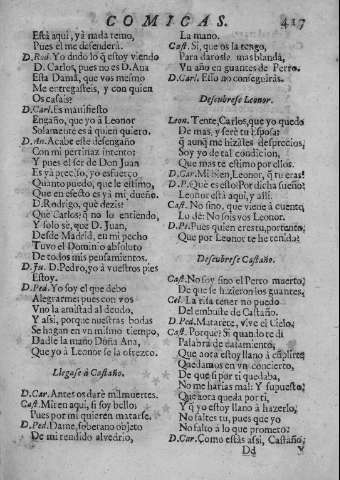 COMICAS. 427
Està aquì, yà nada temo,
Pues èl me defenderà.
D. Rod. Yo dudo lo q̃ estoy viendo
D. Carlos, pues no es D. Ana
Esta Dama, que vos mesmo
Me entregasteis, y con quien
Os casais?
D. Car. Es manifiesto
Engaño, que yo à Leonor
Solamente es à quien quiero.
D. An. Acabe este desengaño
Con mi pertinaz intento:
Y pues el ser de Don Juan
Es yà preciso, yo esfuerço
Quanto puedo, que le estimo,
Que en efecto es yà mi dueño.
D. Rodrigo, què dezis?
Què Carlos? q̃ no lo entiendo,
Y solo sè, que D. Juan,
Desde Madrid, en mi pecho
Tuvo el Dominio absoluto
De todos mis pensamientos.
D. Ju. D. Pedro, yo à vuestros pies
Estoy.
D. Ped. Yo soy el que debo
Alegrarme; pues con vos
Vno la amistad al deudo,
Y assi, porque nuestras bodas
Se hagan en vn mismo tiempo,
Dadle la mano Doña Ana,
Que yo à Leonor se la ofrezco.
Llegase à Castaño.
D. Car. Antes os darè mil muertes.
Cast. Miren aquì, si soy bello;
Pues por mì quieren matarse.
D. Ped. Dame, soberano objeto
De mi rendido alvedrio,
La mano.
Cast. Sì, que os la tengo,
Para darosla mas blanda,
Vn año en guantes de Perro.
D. Carl. Esso no conseguiràs.
Descubrese Leonor.
Leon. Tente, Carlos, que yo quedo
De mas, y serè tu Esposa:
q̃ aunq̃ me hizistes desprecios,
Soy yo de tal condicion,
Que mas te estimo por ellos.
D. Car. Mi bien, Leonor, q̃ tu eras!
D. P. Què es esto? Por dicha sueño!
Leonor està aquì, y allì.
Cast. No sino, que viene à cuento,
Lo de: No sois vos Leonor.
D. Pe. Pues quien eres tu, portento,
Que por Leonor te he tenido?
Descubrese Castaño.
Cast. No soy sino el Perro muerto,
De que se hizieron los guantes.
Cel. La risa tener no puedo
Del embuste de Castaño.
D. Ped. Matarète, vive el Cielo.
Cast. Porquè? Si quando te dì
Palabra de casamiento,
Que aora estoy llano à cũplirte,
Quedamos en vn concierto,
De que si por ti quedaba,
No me harias mal: Y supuesto,
Que aora queda por ti,
Y q̃ yo estoy llano à hazerlo,
No faltes tu, pues que yo
No falto à lo que prometo:
D. Car. Como estàs assi, Castaño;
Dd y